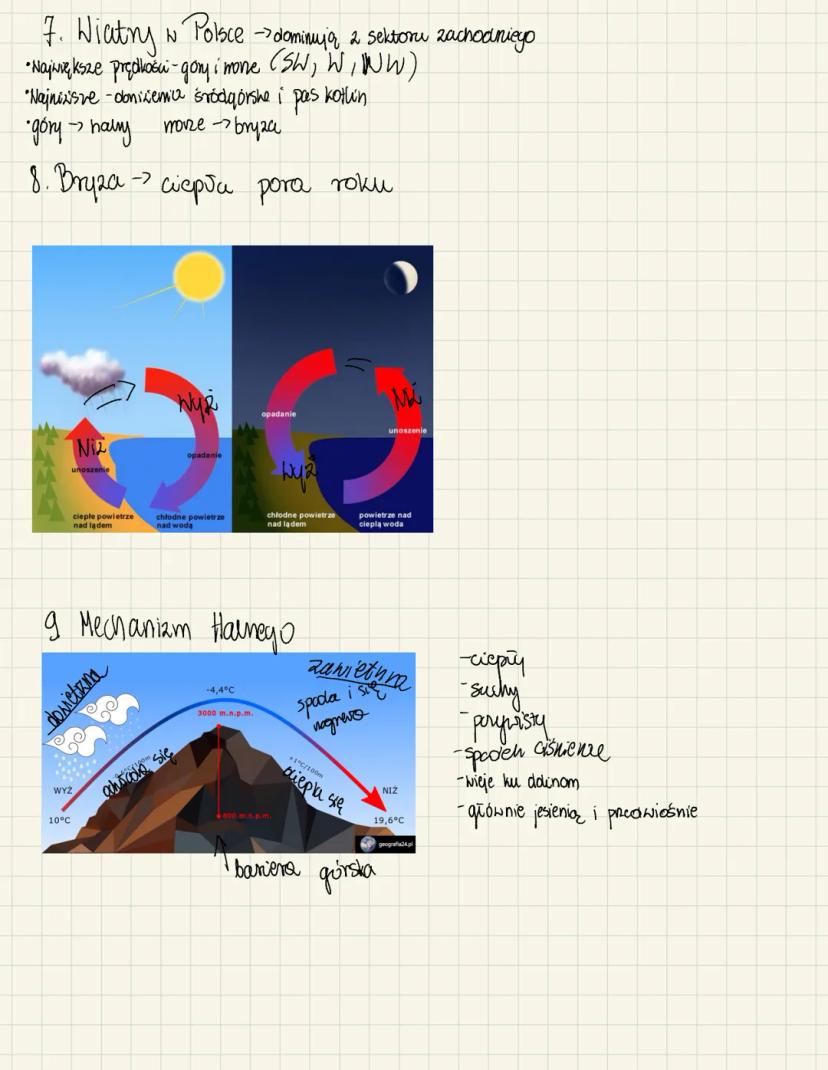 7. Wiatry w Polsce → dominują z sektoru zachodniego
• Największe prędkości - góry i morze (SW, W, NW)
• Najniższe - obniżenia śródgórskie i pas kotlin
• góry → halny morze → bryza
8. Bryza → ciepła pora roku
Wyż
Niż
unoszenie
opadanie
ciepłe powietrze
nad lądem
chłodne powietrze
nad wodą
Niż
opadanie
unoszenie
Wyż
chłodne powietrze
nad lądem
powietrze nad
cieplą woda
9 Mechanizm Halnego
dowietrzna
zawietrzna
-4,4°C
spada i się
nagrzewa
3000 m.n.p.m.
ochładza się
+1°C/100m
ciepla się
WYŻ
NIŻ
10°C
600 m.n.p.m.
19,6°C
geografia24.pl
bariera górska
- ciepły
- suchy
- porywisty
- spadek ciśnienie
- wieje ku dolinom
- głównie jesienią i przedwiośnie